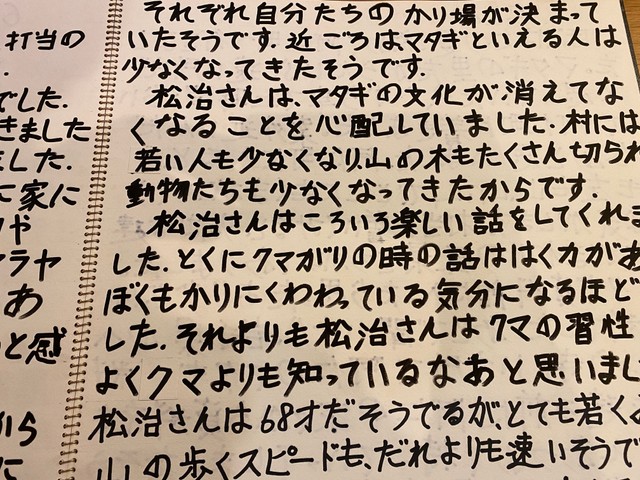 打当の
でした.
きました
ました.
に家に
や
ラヤ
あ
と感
から
に
それぞれ自分たちのかり場が決まって
いたそうです.近ごろは、マタギといえる人は
少なくなってきたそうです.
松治さんは、マタギの文化が消えてな
くなることを心配していました.村には
若い人も少なくなり、山の木もたくさん切られ
動物たちも少なくなってきたからです.
松治さんはころいろ楽しい話をしてくれ
した.とくにクマがりの時の話ははく力があ
ぼくもかりにくわわっている気分になるほど
した.それよりも松治さんはクマの習性
よくクマよりも知っているなあと思いまし
松治さんは68才だそうでるが、とても若く
山の歩くスピードも、だれよりも速いそうで